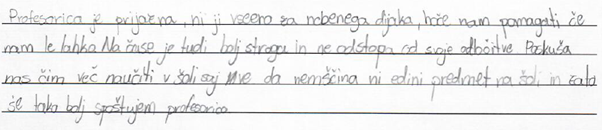 Profesorica je prijazna, ni ji vseeno za nobenega dijaka, hoče nam pomagati če
nam le lahka. Na čase je tudi bolj stroga in ne odstopa od svoje odločitve. Poskuša
nas čim več naučiti v šoli saj ve da nemščina ni edini predmet na šoli in zato
še tako bolj spoštujem profesorico.